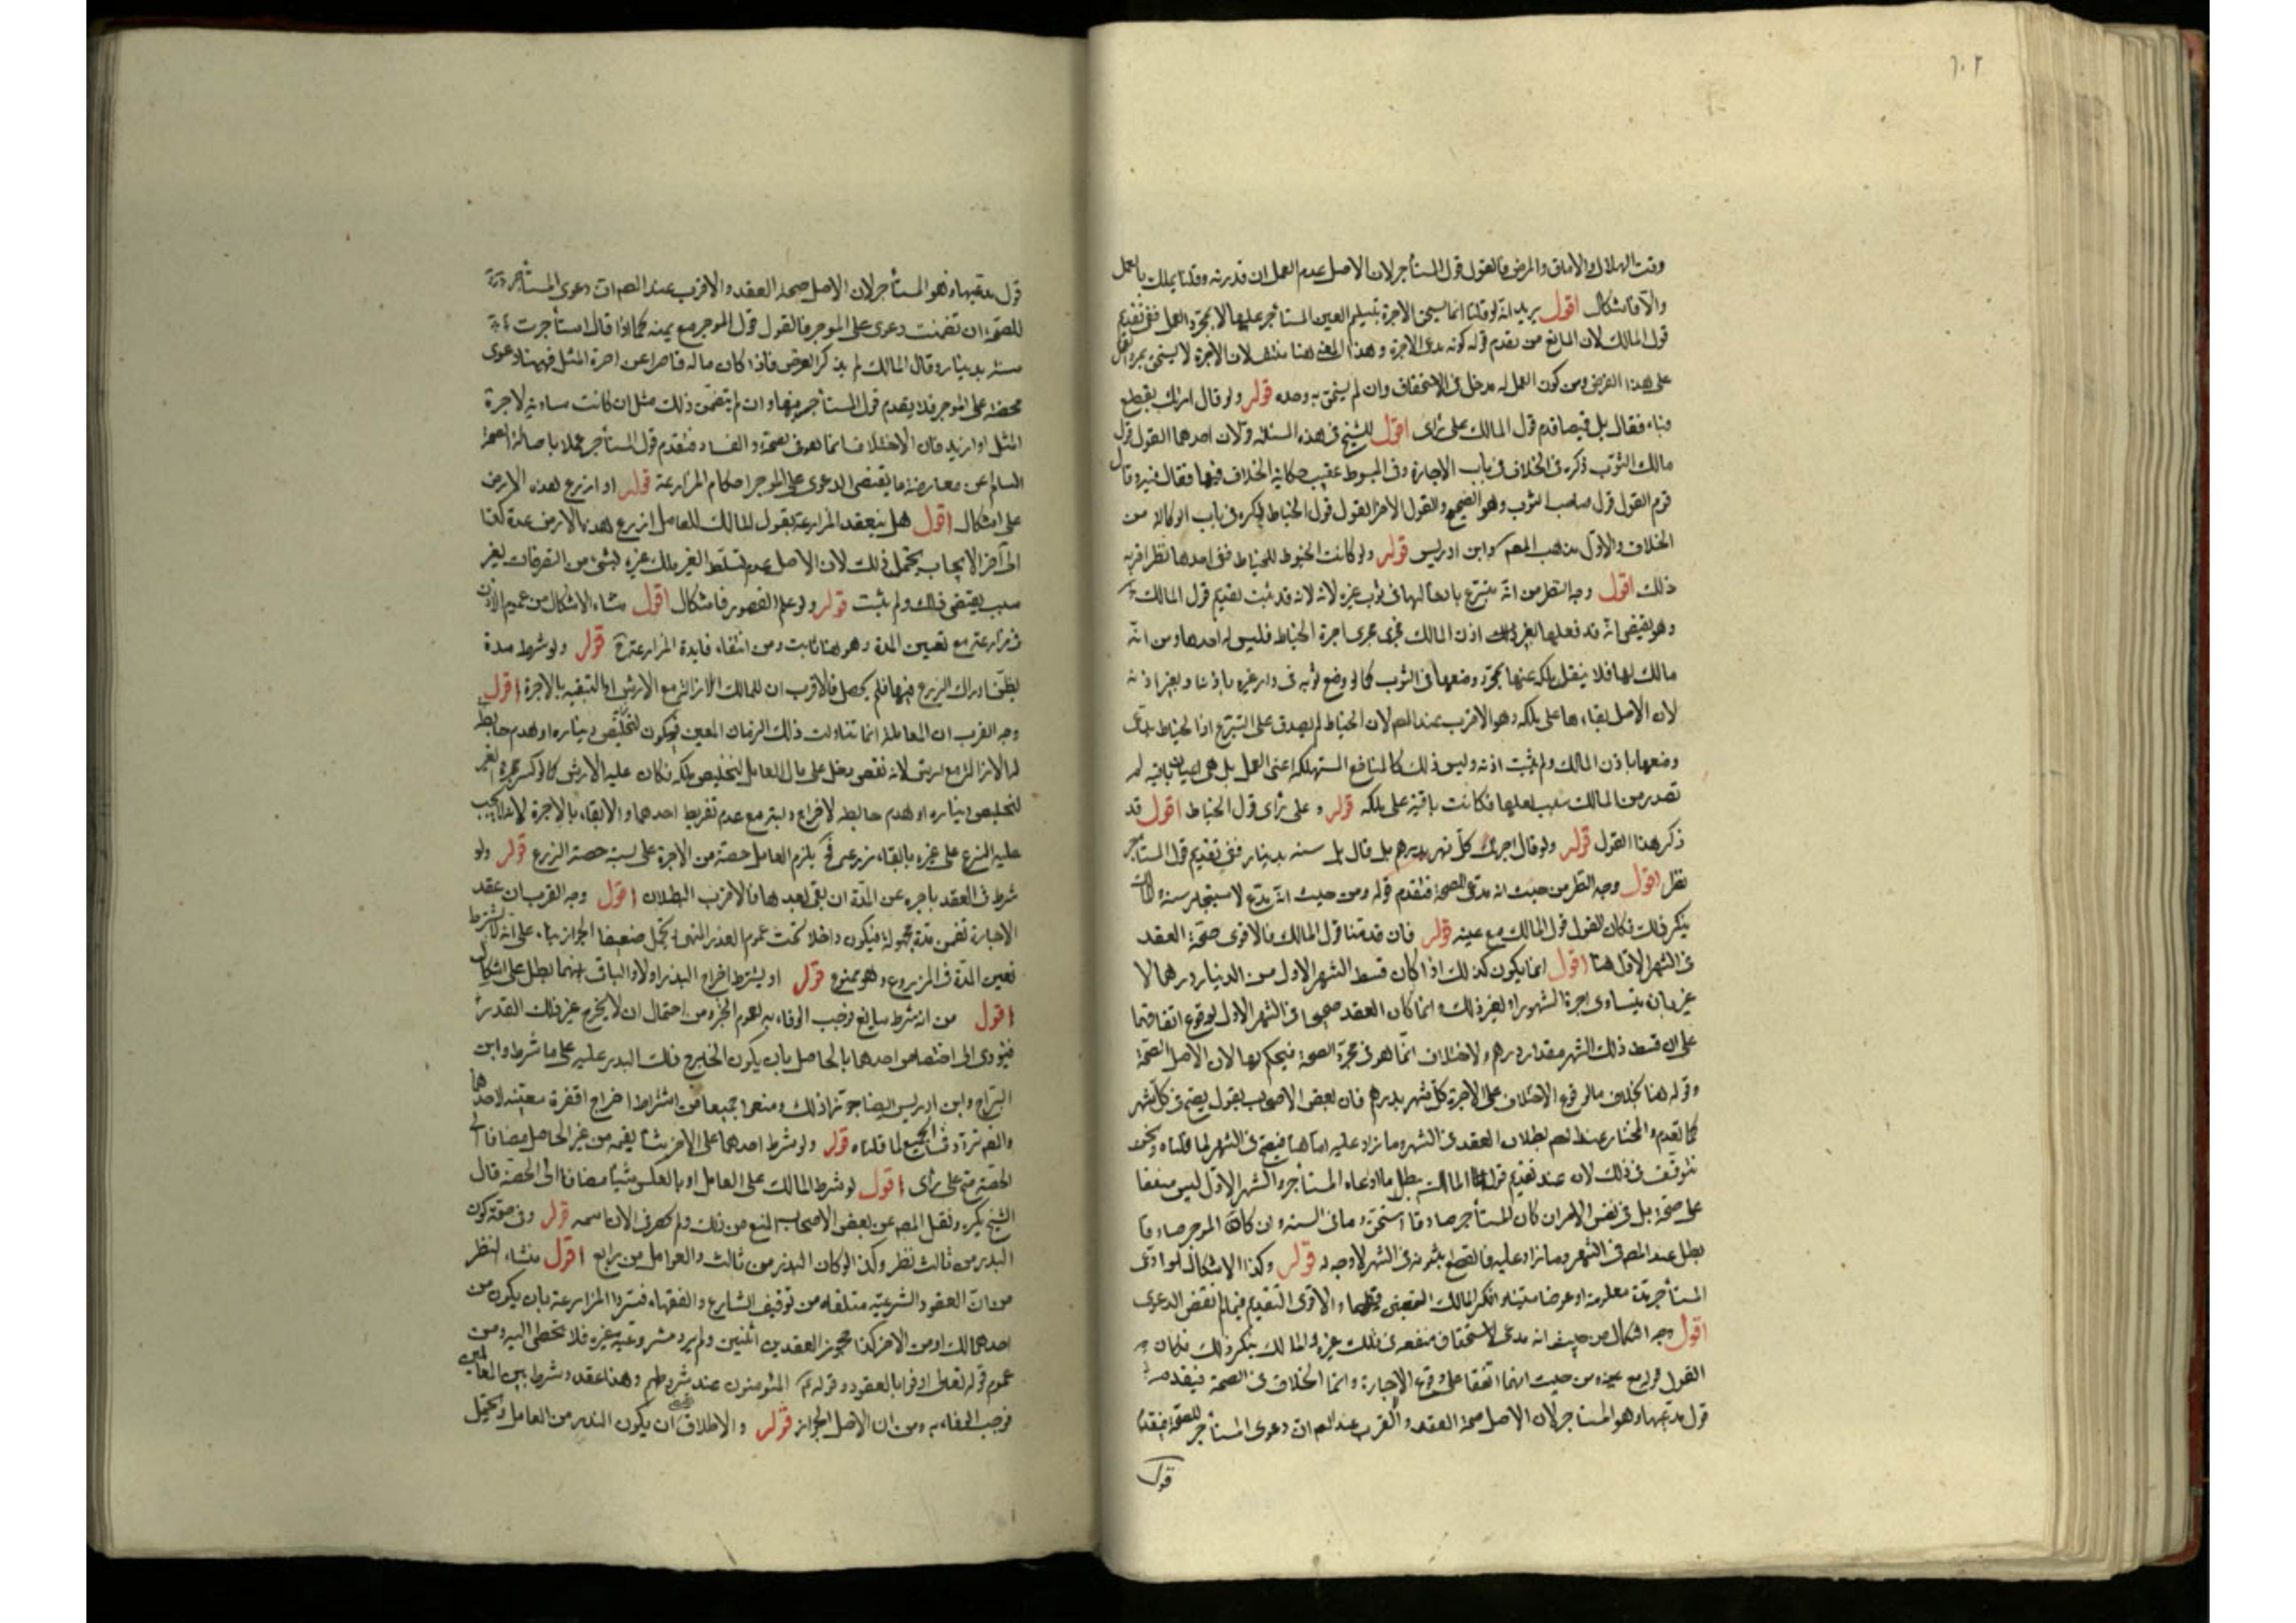 ١٠٢
وقت الهلاك والاباق والمرض فالقول قول المستأجر لان الاصل عدم العمل ان قدرته وقلنا يملك بالعمل
والا فاشكال اقول يريد انه لو قلنا انما يستحق الاجرة بتسليم العين المستأجر عليها لا بمجرد العمل ففي تقديم
قول المالك لان المانع من تقدم قوله كونه يدعى الاجرة وهذا المعنى هنا منتف لان الاجرة لا يستحق بمجرد العمل
على هذا الفرض ومن كون العمل له مدخل في الاستحقاق وان لم يستحق به وحده قوله ولو قال امرتك بقطعه
قباء فقال بل قميصا قدم قول المالك على رأى اقول للشيخ في هذه المسئلة قولان احدهما القول قول
مالك الثوب ذكره في الخلاف في باب الاجارة وفي المبسوط عقيب حكاية الخلاف فيها فقال فيه وقال
قوم القول قول صاحب الثوب وهو الصحيح والقول الاخر القول قول الخياط ذكره في باب الوكالة من
الخلاف والاول مذهب المصم وابن ادريس قوله ولو كانت الخيوط للخياط ففي اخذها نظر اقربه
ذلك اقول وجه النظر من انه متبرع بادخالها في ثوب غيره لانه لانه قد ثبت تقديم قول المالك
وهو يقتضى انه قد فعلها بغير اذن المالك فجرى مجرى اجرة الخياط فليس له اخذها ومن انه
مالك لها فلا ينتقل ملكه عنها بمجرد وضعها في الثوب كما لو وضع ثوبه في دار غيره باذنه او بغير اذنه
لان الاصل بقاءها على ملكه وهو الاقرب عند المصم لان الخياط لم يصدق على التبرع اذ الخياط يدعى
وضعها باذن المالك ولم يثبت اذنه وليس ذلك كالمنافع المستهلكة اعنى العمل بل هي اعيان باقية لم
تصدر من المالك سبب لعليها فكانت باقية على ملكه قوله وعلى رأى قول الخياط اقول قد
ذكر هذا القول قوله ولو قال اجرتك كل شهر بدرهم بل قال بل سنه بدينار ففي تقديم قول المستأجر
نظر اقول وجه النظر من حيث انه مدعى الصحة فتقدم قوله ومن حيث انه يدع لاستيجار سنة والمالك
ينكر ذلك فكان القول قول المالك مع يمينه قوله فان قدمنا قول المالك فالاقوى صحة العقد
في الشهر الاول هنا اقول انما يكون كذلك اذا كان قسط الشهر الاول من الدينار درهما لا
غير بان يتساوى اجرة الشهور او لغير ذلك وانما كان العقد صحيحا في الشهر الاول لوقوع اتفاقهما
على ان قسط ذلك الشهر مقدار درهم والاختلاف انما هو في مجرد الصحة فيحكم بها لان الاصل الصحة
وقوله هنا بخلاف ما لو وقع الاختلاف على الاجرة كل شهر بدرهم فان بعض الاصحاب يقول يصح في كل شهر
كما تقدم والمختار عند المصم بطلان العقد في الشهر وما زاد عليه اما هنا فيصح في الشهر لما قلناه ونحن
نتوقف في ذلك لان عند تقديم قول المالك يبطل ما ادعاه المستأجر والشهر الاول ليس متفقا
على صحته بل في نفس الامر ان كان المستأجر صادقا استحقه وما في السنه وان كان الموجر صادقا
بطل عند المصم في الشهر وما زاد عليه فالقطع بثبوته في الشهر لا وجه له قوله وكذا الاشكال لو ادعى
المستأجر مدة معلومة او عوضا معينا وانكر المالك التعيين فيهما والاقوى التقديم فيما لم يتضمن الدعوى
اقول وجه اشكال من حيث انه مدعى لاستحقاق منفعة في ملك غيره والمالك ينكر ذلك فكان
القول قوله مع يمينه من حيث انهما اتفقا على وقوع الاجارة وانما الخلاف في الصحة فيقدم
قول مدعيها وهو المستأجر لان الاصل صحة العقد والقرب عند المصم ان دعوى المستأجر للصحة
قول
قول مدعيها وهو المستأجر لان الاصل صحة العقد والاقرب عند المصم ان دعوى المستأجر
للصحة ان تضمنت دعوى على الموجر فالقول قول الموجر مع يمينه كما اذا قال استأجرت
سنة بدينار وقال المالك لم يذكر العوض فاذا كان ماله قاصرا عن اجرة المثل فههنا دعوى
محضة على الموجر فلا يقدم قول المستأجر فيها وان لم يتضمن ذلك مثل ان كانت مساوية لاجرة
المثل او ازيد فان الاختلاف انما هو في الصحة والفساد فتقدم قول المستأجر عملا باصالة الصحة
السالم عن معارضة ما يقتضى الدعوى على الموجر احكام المزارعة قوله او ازرع هذه الارض
على اشكال اقول هل ينعقد المزارعة بقول المالك للعامل ازرع هذه الارض عدة كذا
الى آخر الايجاب يحتمل ذلك لان الاصل عدم تسلط الغير بملك غيره لشئ من التصرفات بغير
سبب يقتضى ذلك ولم يثبت قوله ولو علم القصور فاشكال اقول منشاء الاشكال من عموم الاذن
في مزارعته مع تعيين المدة وهو هنا ثابت ومن انتفاء فايدة المزارعة قوله ولو شرط مدة
يظن ادراك الزرع فيها فلم يحصل فالاقرب ان للمالك الازالة مع الارش او التبقيه بالاجرة اقول
وجه القرب ان المعاملة انما تناولت ذلك الزمان المعين فيكون لتخليص ديناره او هدم حايط
له الازالة مع ارش لانه نقص دخل على مال العامل لتخليص ملكه فكان عليه الارش كما لو كسر محبرة الغير
لتخليص ديناره او هدم حايطه لاخراج دابته مع عدم تفريط احدهما والابقاء بالاجرة لانه لا يجب
عليه التبرع على غيره بابقاء زرعه فح يلزم العامل حصته من الاجرة على نسبة حصة الزرع قوله ولو
شرط في العقد تاخيره عن المدة ان بقى بعدها فالاقرب البطلان اقول وجه القرب ان عقد
الاجارة تضمن مدة مجهولة فيكون داخلا تحت عموم الغرر المنهى يحتمل ضعيفا الجواز بناء على انه لا يشترط
تعيين المدة في المزروع وهو ممنوع قوله او يشترط اخراج البذر اولا والباقى بينهما بطل على اشكال
اقول من انه شرط سايغ فوجب الوفاء به لعموم الخبر ومن احتمال ان لا يخرج غير ذلك القدر
فيؤدى الى اختصاص احدهما بالحاصل بان يكون الخارج ذلك البذر عليه على ما شرط وابن
البراج وابن ادريس ايضا جوزا ذلك ومنعوا جميعا من اشتراط اخراج اقفزة معينه لاحدهما
والمصم تردد في الجميع لما قلناه قوله ولو شرط احدهما على الاخر شيئا يضمنه من غير الحاصل مضافا الى
الحصة صح على رأى اقول لو شرط المالك على العامل او بالعكس شيئا مضافا الى الحصة قال
الشيخ يكره ونقل المصم عن بعض الاصحاب المنع من ذلك ولم يحضرنى الان اسمه قوله وفي صحة كون
البذر من ثالث نظر وكذا لو كان البذر من ثالث والعوامل من رابع اقول منشاء النظر
من ان العقود الشرعية متلقاه من توقيف الشارع والفقهاء فسروا المزارعة بان يكون من
احدهما لك ومن الاخر كذا مجوز العقد بين اثنين ولم يرد مشروعيه غيره فلا يتخطى اليه ومن
عموم قوله تعالى اوفوا بالعقود وقوله المؤمنون عند شروطهم وهذا عقد وشرط بين المعاملين
فوجب الوفاء به ومن ان الاصل الجواز قوله والاطلاق ان يكون البذر من العامل ويحتمل